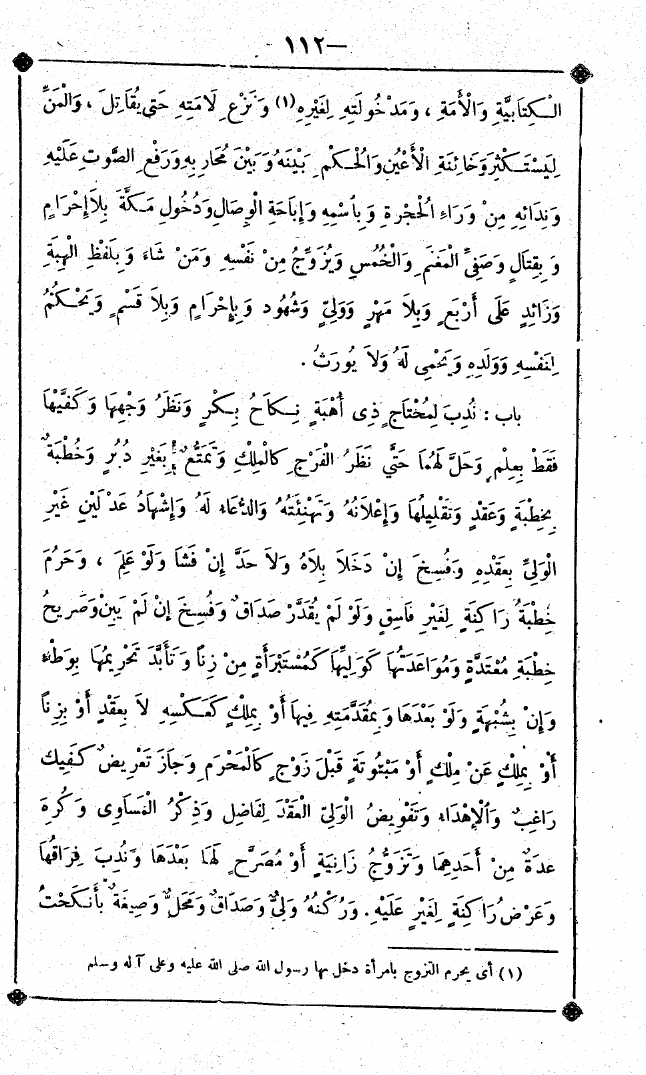 —١١٢-
الْكِتَابِيَّةِ وَالْأَمَةِ ، وَمَدْخُولَتِهِ لِغَيْرِهِ (١) وَنَزْعِ لَامَتِهِ حَتَّى يُقَاتِلَ ، وَالْمَنِّ
لِيَسْتَكْثِرَ وَخَائِنَةِ الْأَعْيُنِ وَالْحُكْمِ بَيْنَهُ وَبَيْنَ مُحَارِبِهِ وَرَفْعِ الصَّوْتِ عَلَيْهِ
وَنِدَائِهِ مِنْ وَرَاءِ الْحُجْرَةِ وَبِاسْمِهِ وَإِبَاحَةِ الْوِصَالِ وَدُخُولِ مَكَّةَ بِلَا إِحْرَامٍ
وَبِقِتَالٍ وَصَفِيِّ الْمَغْنَمِ وَالْخُمُسِ وَيُزَوِّجُ مِنْ نَفْسِهِ وَمَنْ شَاءَ وَبِلَفْظِ الْهِبَةِ
وَزَائِدٍ عَلَى أَرْبَعٍ وَبِلَا مَهْرٍ وَوَلِيٍّ وَشُهُودٍ وَبِإِحْرَامٍ وَبِلَا قَسْمٍ وَيَحْكُمُ
لِنَفْسِهِ وَوَلَدِهِ وَيَحْمِى لَهُ وَلَا يُورَثُ .
باب : نُدِبَ لِمُحْتَاجٍ ذِى أُهْبَةٍ نِكَاحُ بِكْرٍ وَنَظَرُ وَجْهِهَا وَكَفَّيْهَا
فَقَطْ بِعِلْمٍ وَحَلَّ لَهُمَا حَتَّى نَظَرُ الْفَرْجِ كَالْمِلْكِ وَتَمَتُّعٌ بِغَيْرِ دُبُرٍ وَخُطْبَةٌ
بِخِطْبَةٍ وَعَقْدٍ وَتَقْلِيلُهَا وَإِعْلَانُهُ وَتَهْنِئَتُهُ وَالدُّعَاءُ لَهُ وَإِشْهَادُ عَدْلَيْنِ غَيْرِ
الْوَلِيِّ بِعَقْدِهِ وَفُسِخَ إِنْ دَخَلَا بِلَاهُ وَلَا حَدَّ إِنْ فَشَا وَلَوْ عَلِمَ ، وَحَرُمَ
خِطْبَةُ رَاكِنَةٍ لِغَيْرِ فَاسِقٍ وَلَوْ لَمْ يُقَدَّرْ صَدَاقٌ وَفُسِخَ إِنْ لَمْ يَبْنِ وَصَرِيحُ
خِطْبَةِ مُعْتَدَّةٍ وَمُوَاعَدَتُهَا كَوَلِيِّهَا كَمُسْتَبْرَأَةٍ مِنْ زِنًا وَتَأَبَّدَ تَحْرِيمُهَا بِوَطْءٍ
وَإِنْ بِشُبْهَةٍ وَلَوْ بَعْدَهَا وَبِمُقَدِّمَتِهِ فِيهَا أَوْ بِمِلْكٍ كَعَكْسِهِ لَا بِعَقْدٍ أَوْ بِزِنًا
أَوْ بِمِلْكٍ عَنْ مِلْكٍ أَوْ مَبْتُوتَةٍ قَبْلَ زَوْجٍ كَالْمَحْرَمِ وَجَازَ تَعْرِيضٌ كَفِيكِ
رَاغِبٌ وَالْإِهْدَاءُ وَتَفْوِيضُ الْوَلِيِّ الْعَقْدَ لِفَاضِلٍ وَذِكْرُ الْمَسَاوِى وَكُرِهَ
عِدَةٌ مِنْ أَحَدِهِمَا وَتَزَوُّجُ زَانِيَةٍ أَوْ مُصَرَّحٍ لَهَا بَعْدَهَا وَنُدِبَ فِرَاقُهَا
وَعَرْضُ رَاكِنَةٍ لِغَيْرٍ عَلَيْهِ. وَرُكْنُهُ وَلِيٌّ وَصَدَاقٌ وَمَحَلٌّ وَصِيغَةٌ بِأَنْكَحْتُ
(١) أى يحرم التزوج بامرأة دخل بها رسول الله صلى الله عليه وعلى آله وسلم